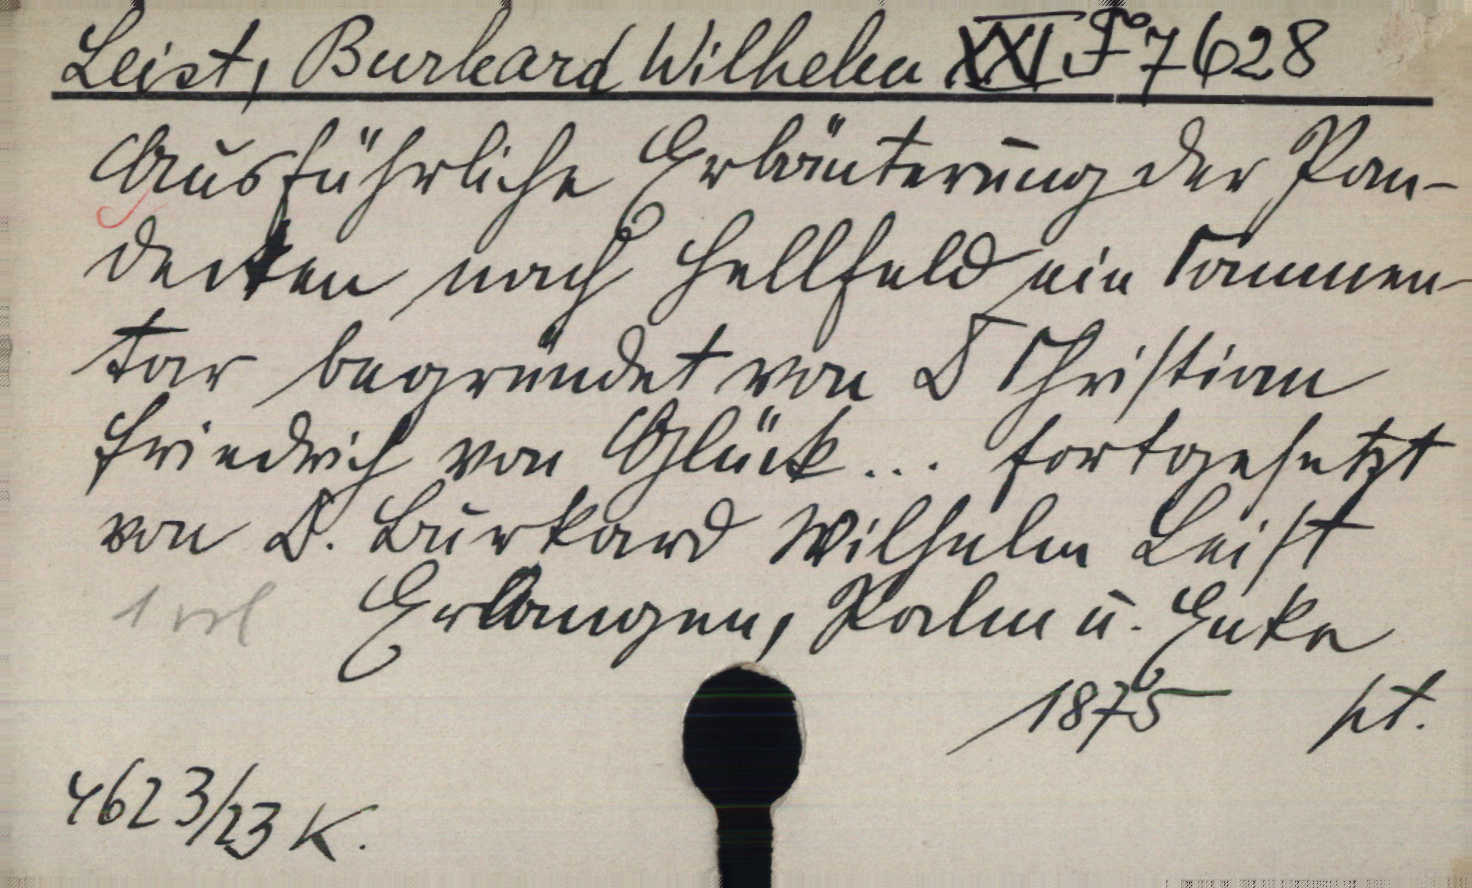 Leist, Burkard Wilhelm XXI F° 7628
Ausführliche Erläuterung der Pan-
decten nach Hellfeld ein Commen-
tar begründet von D Christian
Friedrich von Glück... fortgesetzt
von D. Burkard Wilhelm Leist
1 vol Erlangen, Palm u. Enke
1875
4623/23 K.